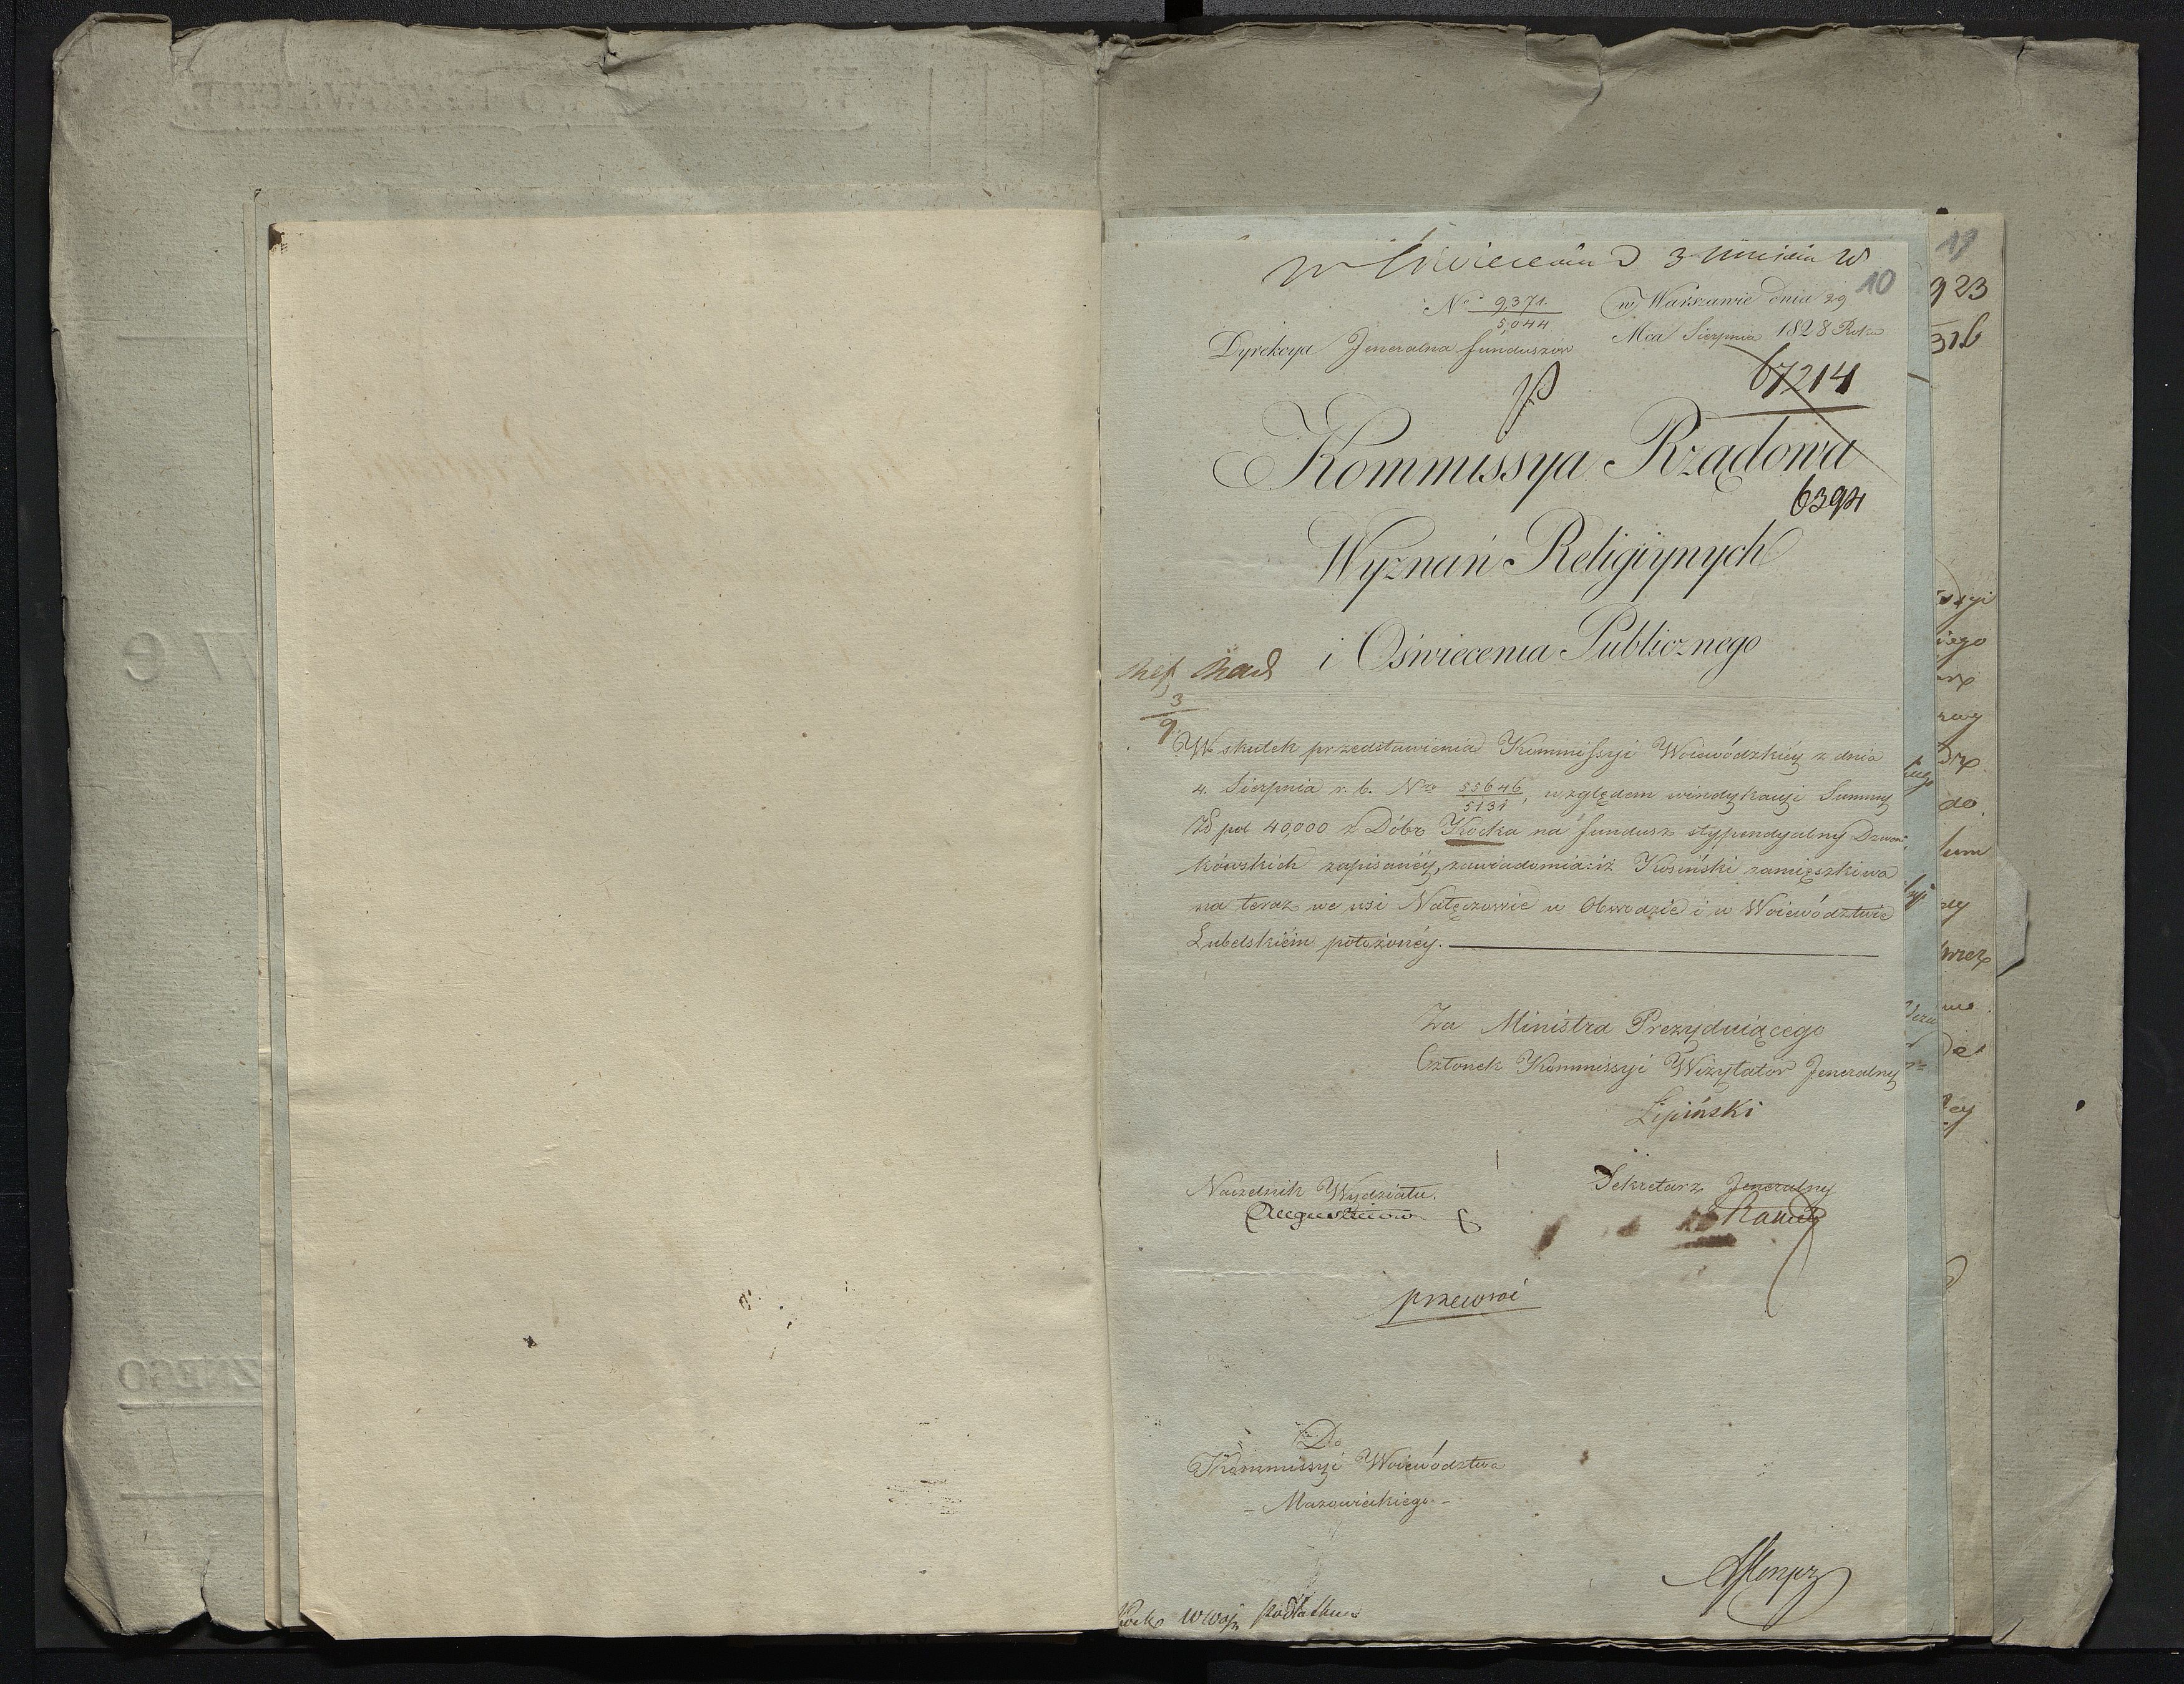 10
No 9,371.
5,044
w Warszawie dnia 29
Mca Sierpnia 1828 Roku
Dyrekcya Jeneralna funduszow
67214
Kommissya Rządowa
6394
Wyznań Religiynych
i Oświecenia Publicznego
3
9
W skutek przedstawienia Kommissyi Woiewódzkiéy z dnia
4. Sierpnia r. b. Nro 55646/5131, względem windykacyi Summy
Zł pol 40,000 z Dóbr Kocka na fundusz stypendyalny Dzwon-
kowskich zapisanéy, zawiadomia: iż Kosiński zamięszkiwa
na teraz we wsi Nałęczowie w Obwodzie i w Woiewództwie
Lubelskiém położonéy.
Za Ministra Prezyduiącego
Członek Kommissyi Wizytator Jeneralny
Lipiński
Naczelnik Wydziału.
Sekretarz Jeneralny
Do
Kommissyi Woiewództwa
- Mazowieckiego -
19
923
316